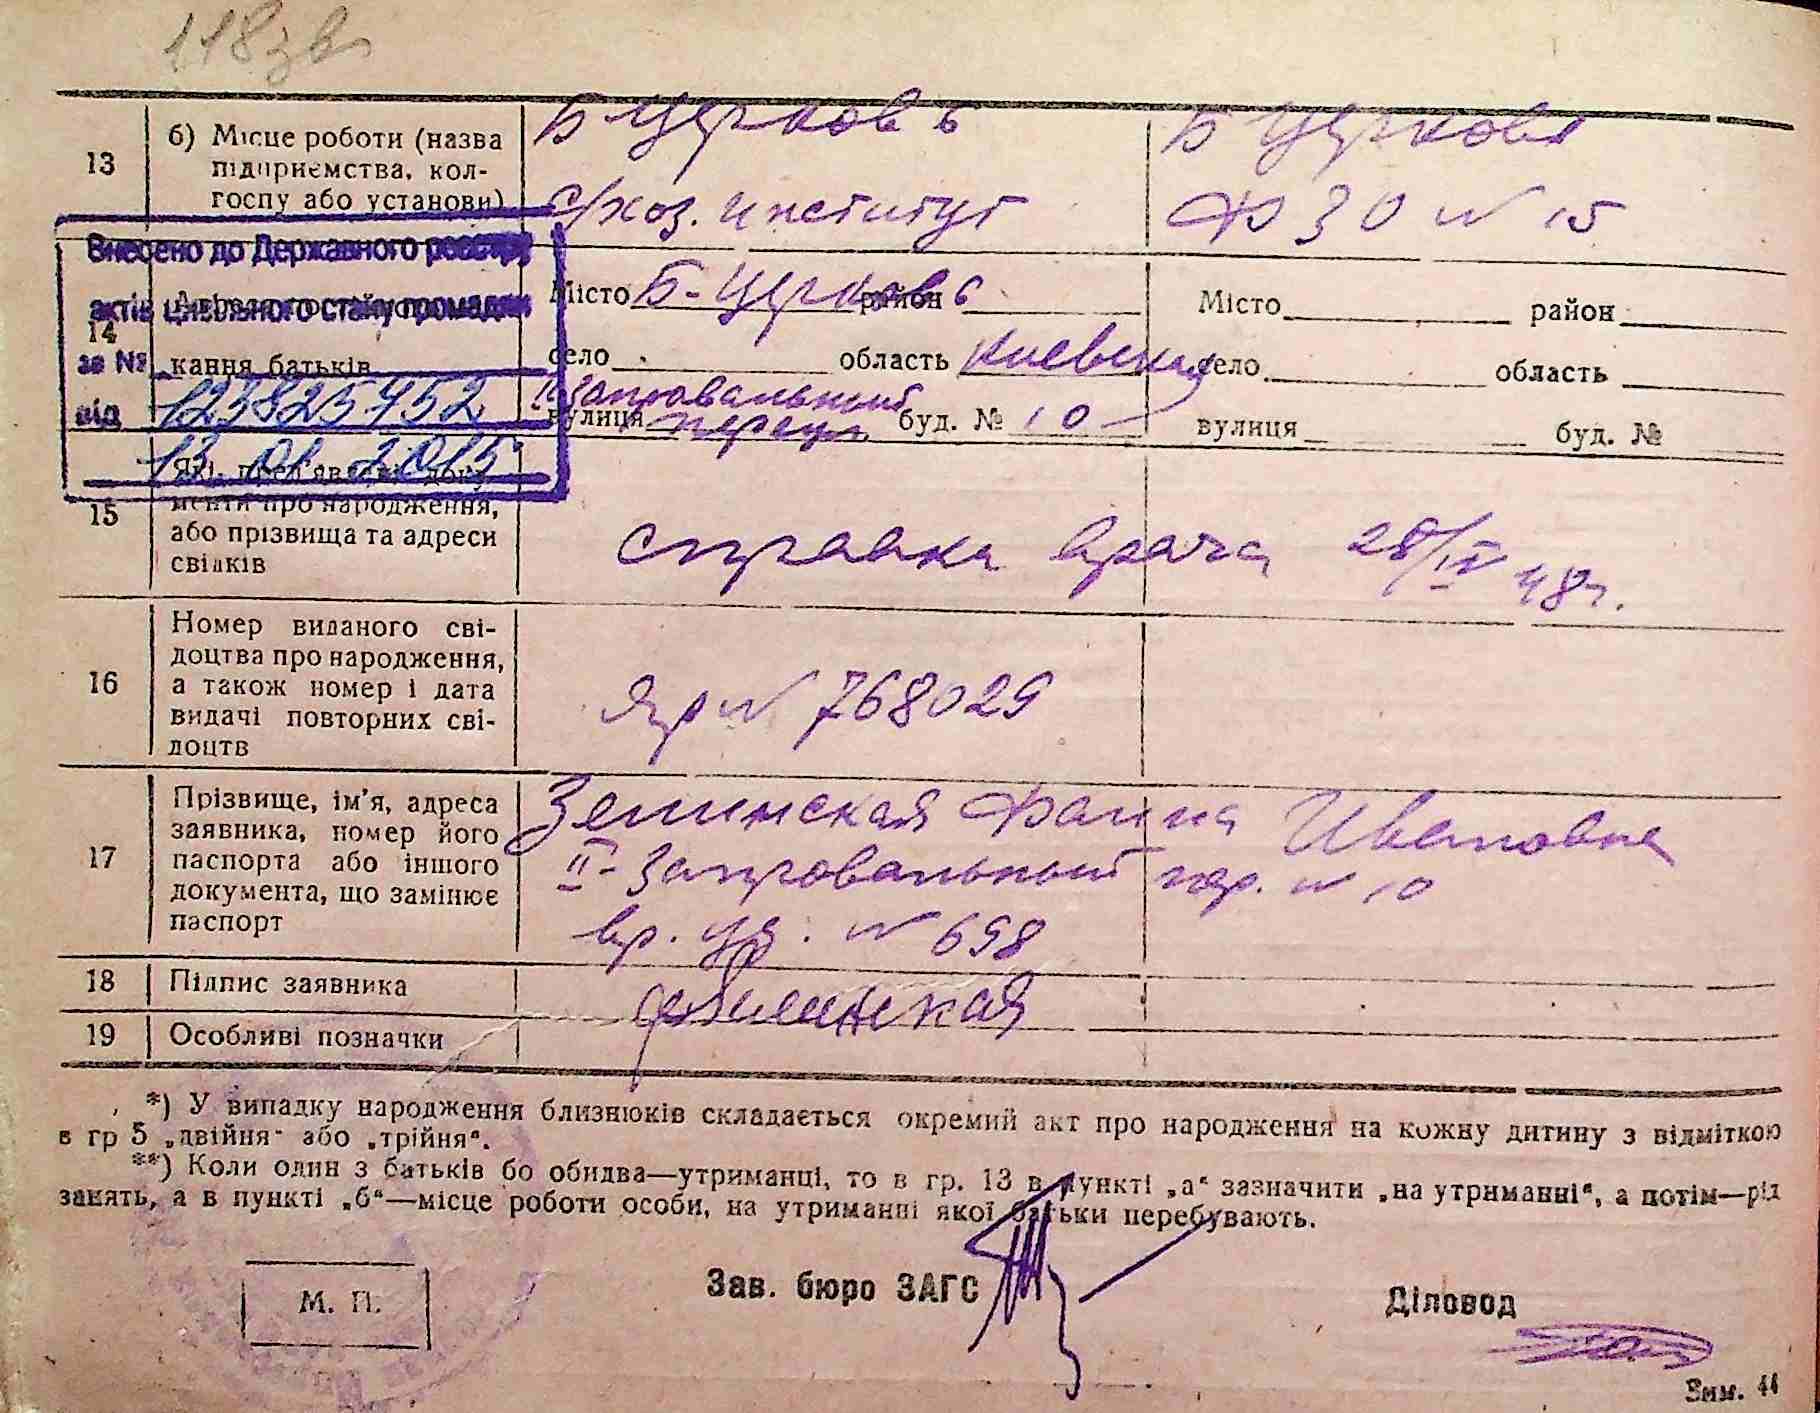 118зв
13
б) Місце роботи (назва
підприємства, кол-
госпу або установи)
Б Церковь
с/хоз. институт
Б Церковь
ФЗО № 15
Внесено до Державного реєстру
актів цивільного стану громадян
за №
123825752
від 13 01 2015
14
кання батьків
Місто Б-Церковь район
село область Киевская
II Запровальный
вулиця переул буд. № 10
Місто район
село область
вулиця буд. №
15
Які пред'явлені доку-
менти про народження,
або прізвища та адреси
свідків
справка врача 28/IV 48г.
16
Номер виданого сві-
доцтва про народження,
а також номер і дата
видачі повторних сві-
доцтв
ЯР № 768029
17
Прізвище, ім'я, адреса
заявника, номер його
паспорта або іншого
документа, що замінює
паспорт
Зелинская Фаина Ивановна
II-Запровальный пер. № 10
вр. уд. № 698
18
Підпис заявника
19
Особливі позначки
*) У випадку народження близнюків складається окремий акт про народження на кожну дитину з відміткою
в гр 5 „двійня" або „трійня".
**) Коли один з батьків бо обидва—утриманці, то в гр. 13 в пункті „а" зазначити „на утриманні", а потім—рід
занять, а в пункті „б"—місце роботи особи, на утриманні якої батьки перебувають.
М. П.
Зав. бюро ЗАГС
Діловод
Зим. 44